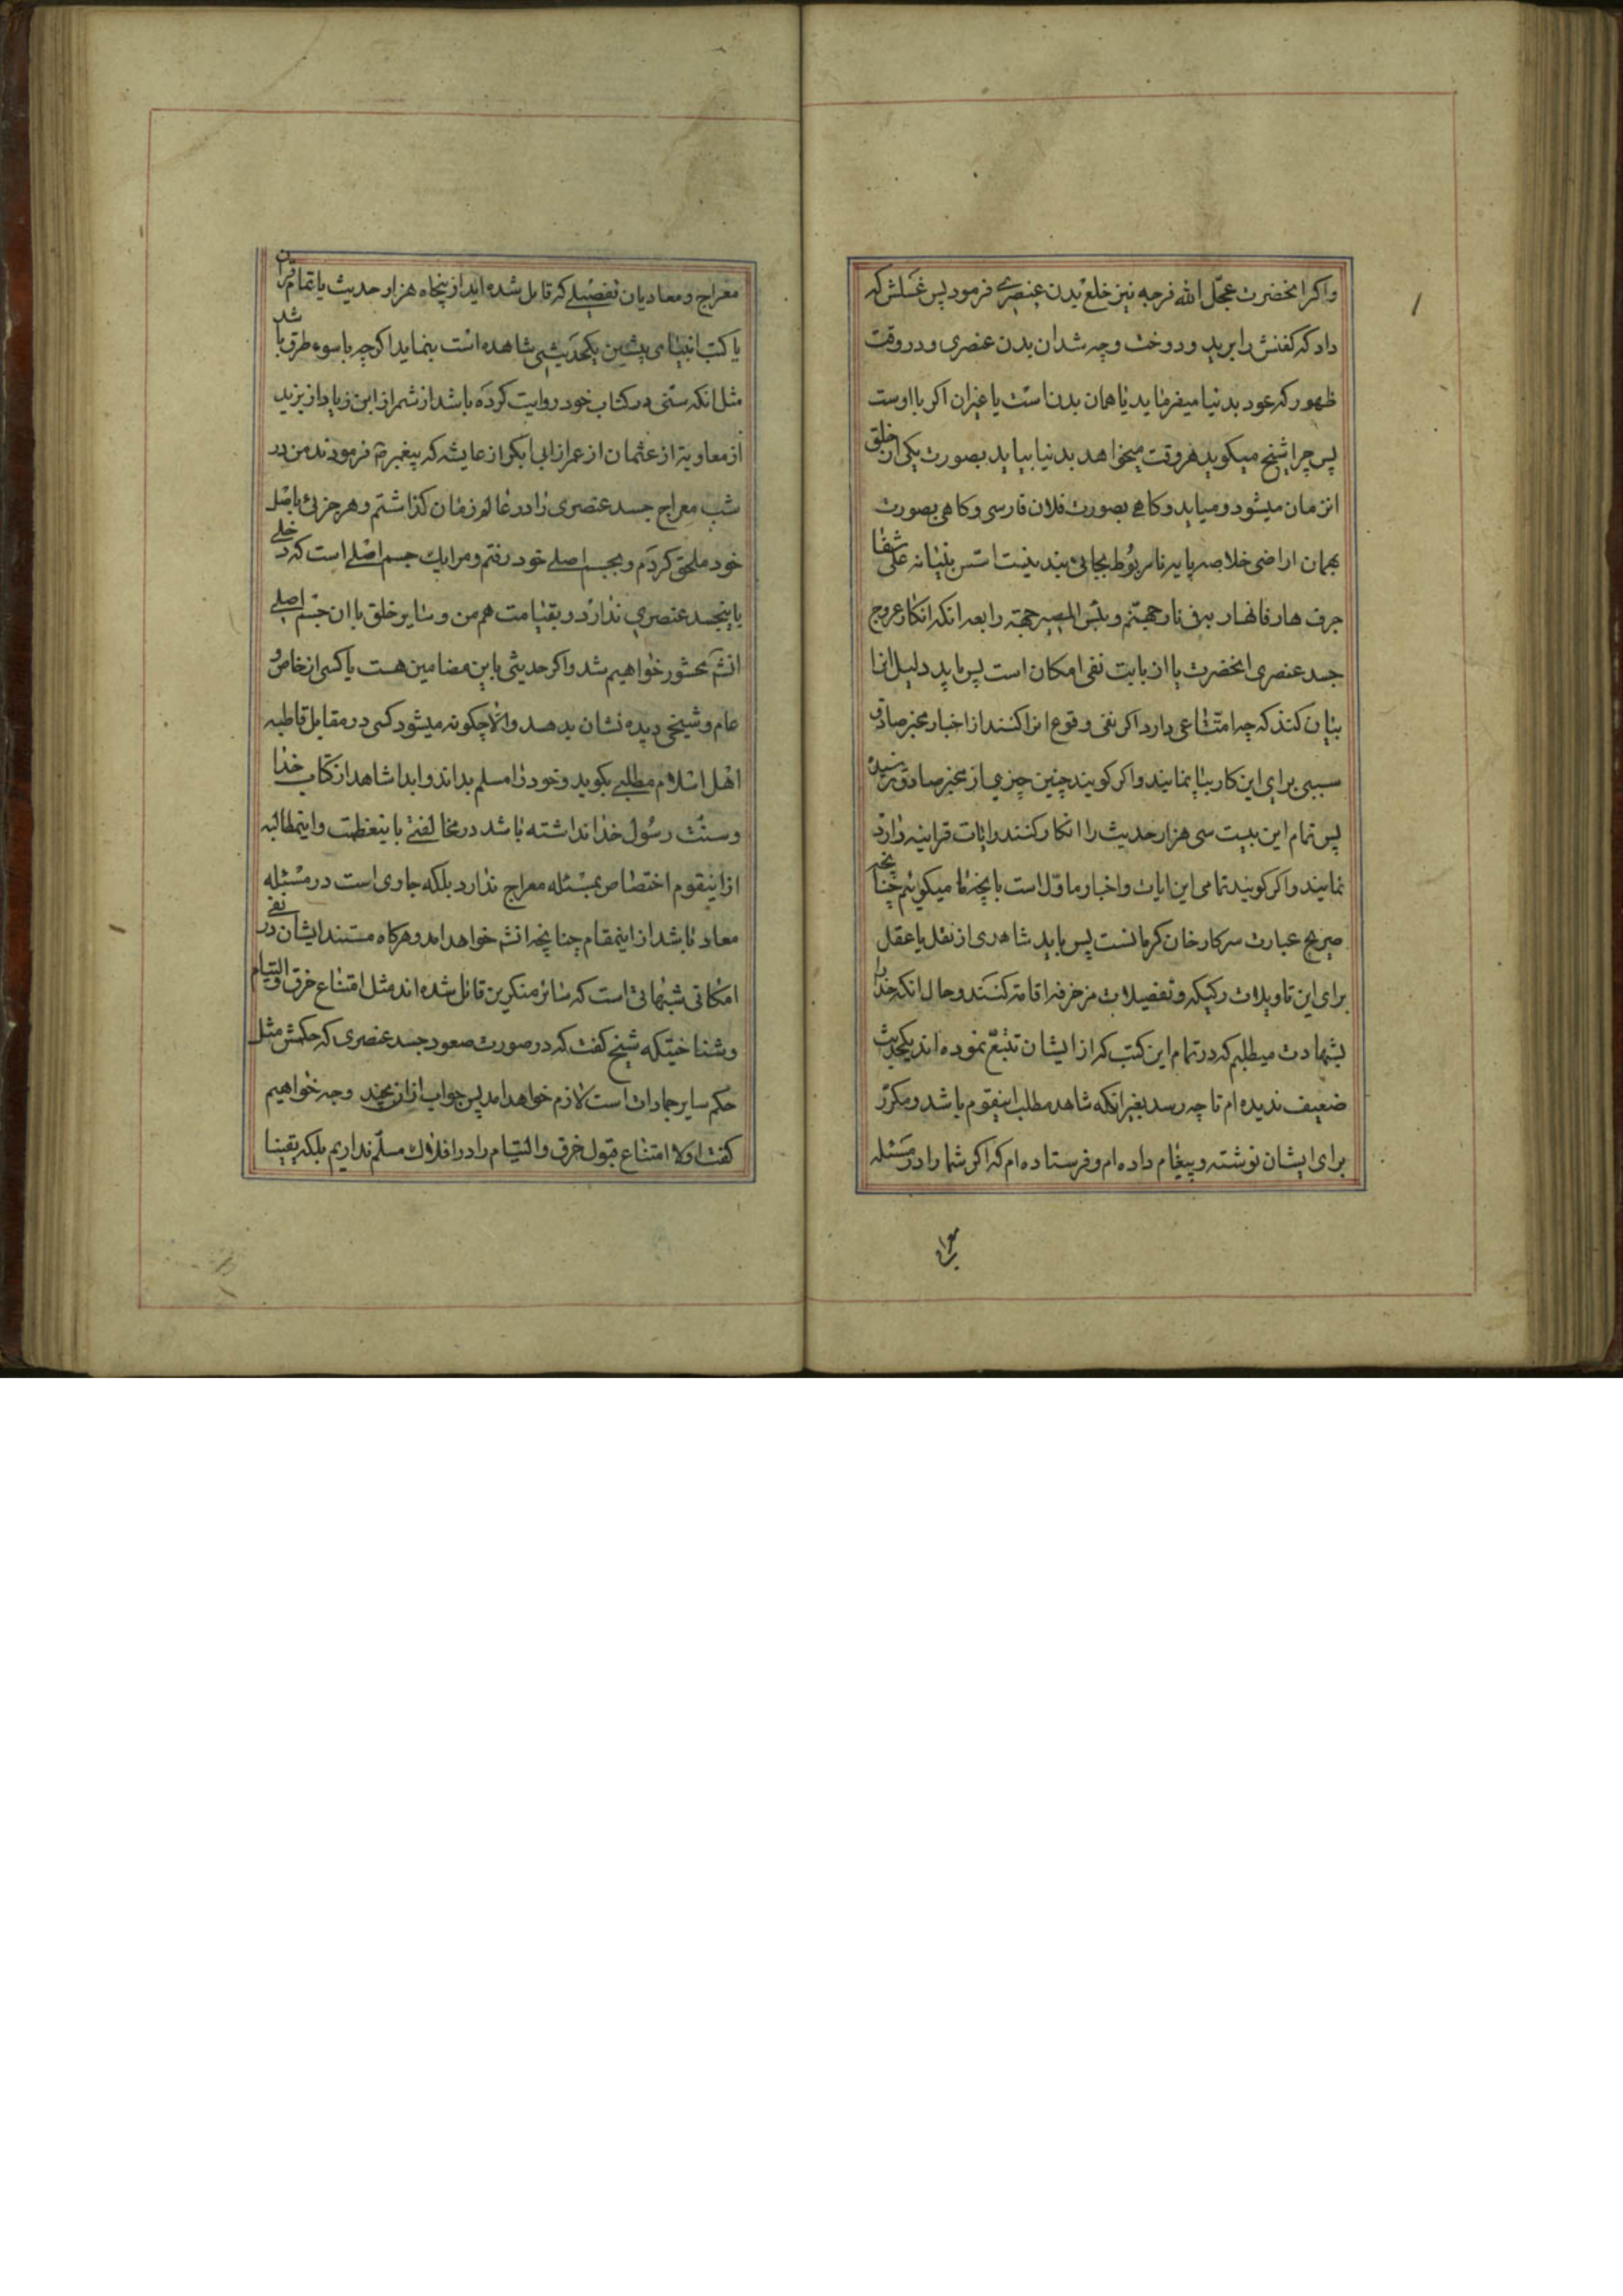 واکر انحضرت عجّل الله فرجه نیز خلع بدن عنصری فرمود پس غسلش که
داد که کفنش را برید و دوخت و چه شد ان بدن عنصری و در وقت
ظهور که عود بدنیا میفرماید یا همان بدنست یا غیر ان اکر با اوست
پس چرا شیخ میکوید هر وقت میخواهد بدنیا بیاید بصورت یکی از خلق
ان زمان میشود و میاید و کاهی بصورت فلان فارسی و کاهی بصورت
بهمان اراضی خلاصه پایه نامربوط بجائی بند نیست اسّس بنیانه علی شفا
جرف هار فانهار به فی نار جهنّم و بئس المصیر حجة رابعه انکه انکار عروج
جسد عنصری انحضرت یا از بابت نفی امکان است پس باید دلیل انرا
بیان کنند که چه امتناعی دارد اکر نفی وقوع انرا کنند از اخبار مخبر صادق
سببی برای این کار بیا نمایند و اکر کویند چنین چیزی از مخبر صادق نرسیده
پس تمام این بیست سی هزار حدیث را انکار کنند و ایات قرانیه را رد
نمایند و اکر کویند تمامی این ایات و اخبار ماوّل است بانچه ما میکوئیم چنانچه
صریح عبارت سرکار خان کرمانست پس باید شاهدی از نقل یا عقل
برای این تاویلات رکیکه و تفصیلات مزخرفه اقامه کنند و حال انکه خدا را
بشهادت میطلبم که در تمام این کتب که از ایشان تتبّع نموده اند یکحدیث
ضعیف ندیده ام تا چه رسد بغیر انکه شاهد مطلب اینقوم باشد و مکرّر
برای ایشان نوشته و پیغام داده ام و فرستاده ام که اکر شما را در مسئله
معراج
معراج و معاد یان تفصیلی که قایل شده اید از پنجاه هزار حدیث یا تمام قران
یا کتب انبیای پیشین یکحدیثی شاهده است بنماید اکرچه باسوء طرق باشد
مثل انکه سنّی در کتاب خود روایت کرده باشد از شمر از ابن زیاد از یزید
از معاویه از عثمان از عمر از ابی ابکر از عایشه که پیغمبر ص فرمودند من در
شب معراج جسد عنصری را در عالم زمان کذاشتم و هر جزئی باصل
خود ملحق کردم و بجسم اصلی خود رفتم و مرا یک جسم اصلی است که دخلی
باینجسد عنصری ندارد و بقیامت هم من و سایر خلق با ان جسم اصلی
انشم محشور خواهیم شد و اکر حدیثی باین مضامین هست یا کسی از خاص و
عام و شیخی دیده نشان بدهد والا چکونه میشود کسی در مقابل قاطبه
اهل اسلام مطلبی بکوید و خود را مسلم بداند و ابدا شاهد از کتاب خدا
و سنّت رسول خدا نداشته باشد در مخالفتی باینعظمت و اینمطالبه
از اینقوم اختصاص بمسئله معراج ندارد بلکه جاری است در مسئله
معاد نا شد از اینمقام چنانچه انشم خواهد امد و هرکاه مستند ایشان در نفی
امکانی شبهاتی است که سائر منکرین قائل شده اند مثل امتناع خرق و التیام
و شناختیکه شیخ کفت که در صورت صعود جسد عنصری که حکمش مثل
حکم سایر جمادات است لازم خواهد امد پس جواب ازان بچند وجه خواهیم
کفت اولا امتناع قبول خرق و التیام را در افلاک مسلّم نداریم بلکه یقینا